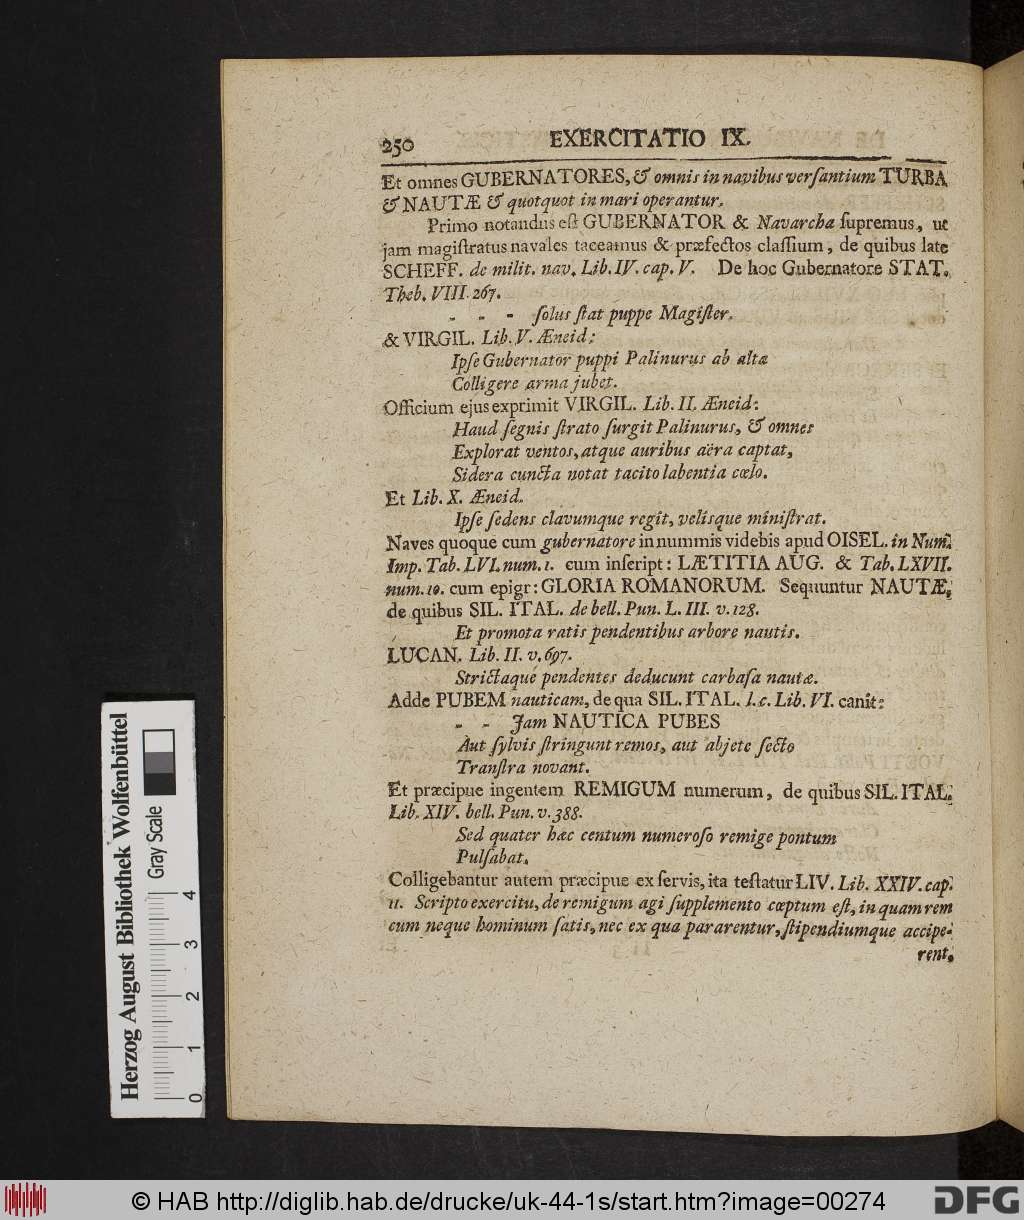 250 EXERCITATIO IX.
Et omnes GUBERNATORES, & omnis in navibus verſantium TURBA
& NAUTÆ & quotquot in mari operantur.
Primo notandus eſt GUBERNATOR & Navarcha ſupremus, ut
jam magiſtratus navales taceamus & præfectos claſſium, de quibus late
SCHEFF. de milit. nav. Lib. IV. cap. V. De hoc Gubernatore STAT.
Theb. VIII. 267.
- - - ſolus ſtat puppe Magiſter.
& VIRGIL. Lib. V. Æneid:
Ipſe Gubernator puppi Palinurus ab alta
Colligere arma jubet.
Officium ejus exprimit VIRGIL. Lib. II. Æneid:
Haud ſegnis ſtrato ſurgit Palinurus, & omnes
Explorat ventos, atque auribus aëra captat,
Sidera cuncta notat tacito labentia cœlo.
Et Lib. X. Æneid.
Ipſe ſedens clavumque regit, velisque miniſtrat.
Naves quoque cum gubernatore in nummis videbis apud OISEL. in Num.
Imp. Tab. LVI. num. 1. cum inſcript: LÆTITIA AUG. & Tab. LXVII.
num. 10. cum epigr: GLORIA ROMANORUM. Sequuntur NAUTÆ,
de quibus SIL. ITAL. de bell. Pun. L. III. v. 128.
Et promota ratis pendentibus arbore nautis.
LUCAN. Lib. II. v. 697.
Strictaque pendentes deducunt carbaſa nautæ.
Adde PUBEM nauticam, de qua SIL. ITAL. l. c. Lib. VI. canit:
- - Jam NAUTICA PUBES
Aut ſylvis ſtringunt remos, aut abjete ſecto
Tranſtra novant.
Et præcipue ingentem REMIGUM numerum, de quibus SIL. ITAL.
Lib. XIV. bell. Pun. v. 388.
Sed quater hæc centum numeroſo remige pontum
Pulſabat.
Colligebantur autem præcipue ex ſervis, ita teſtatur LIV. Lib. XXIV. cap.
11. Scripto exercitu, de remigum agi ſupplemento cœptum eſt, in quam rem
cum neque hominum ſatis, nec ex qua pararentur, ſtipendiumque accipe-
rent.
Herzog August Bibliothek Wolfenbüttel
Gray Scale
0 1 2 3 4
© HAB http://diglib.hab.de/drucke/uk-44-1s/start.htm?image=00274
DFG